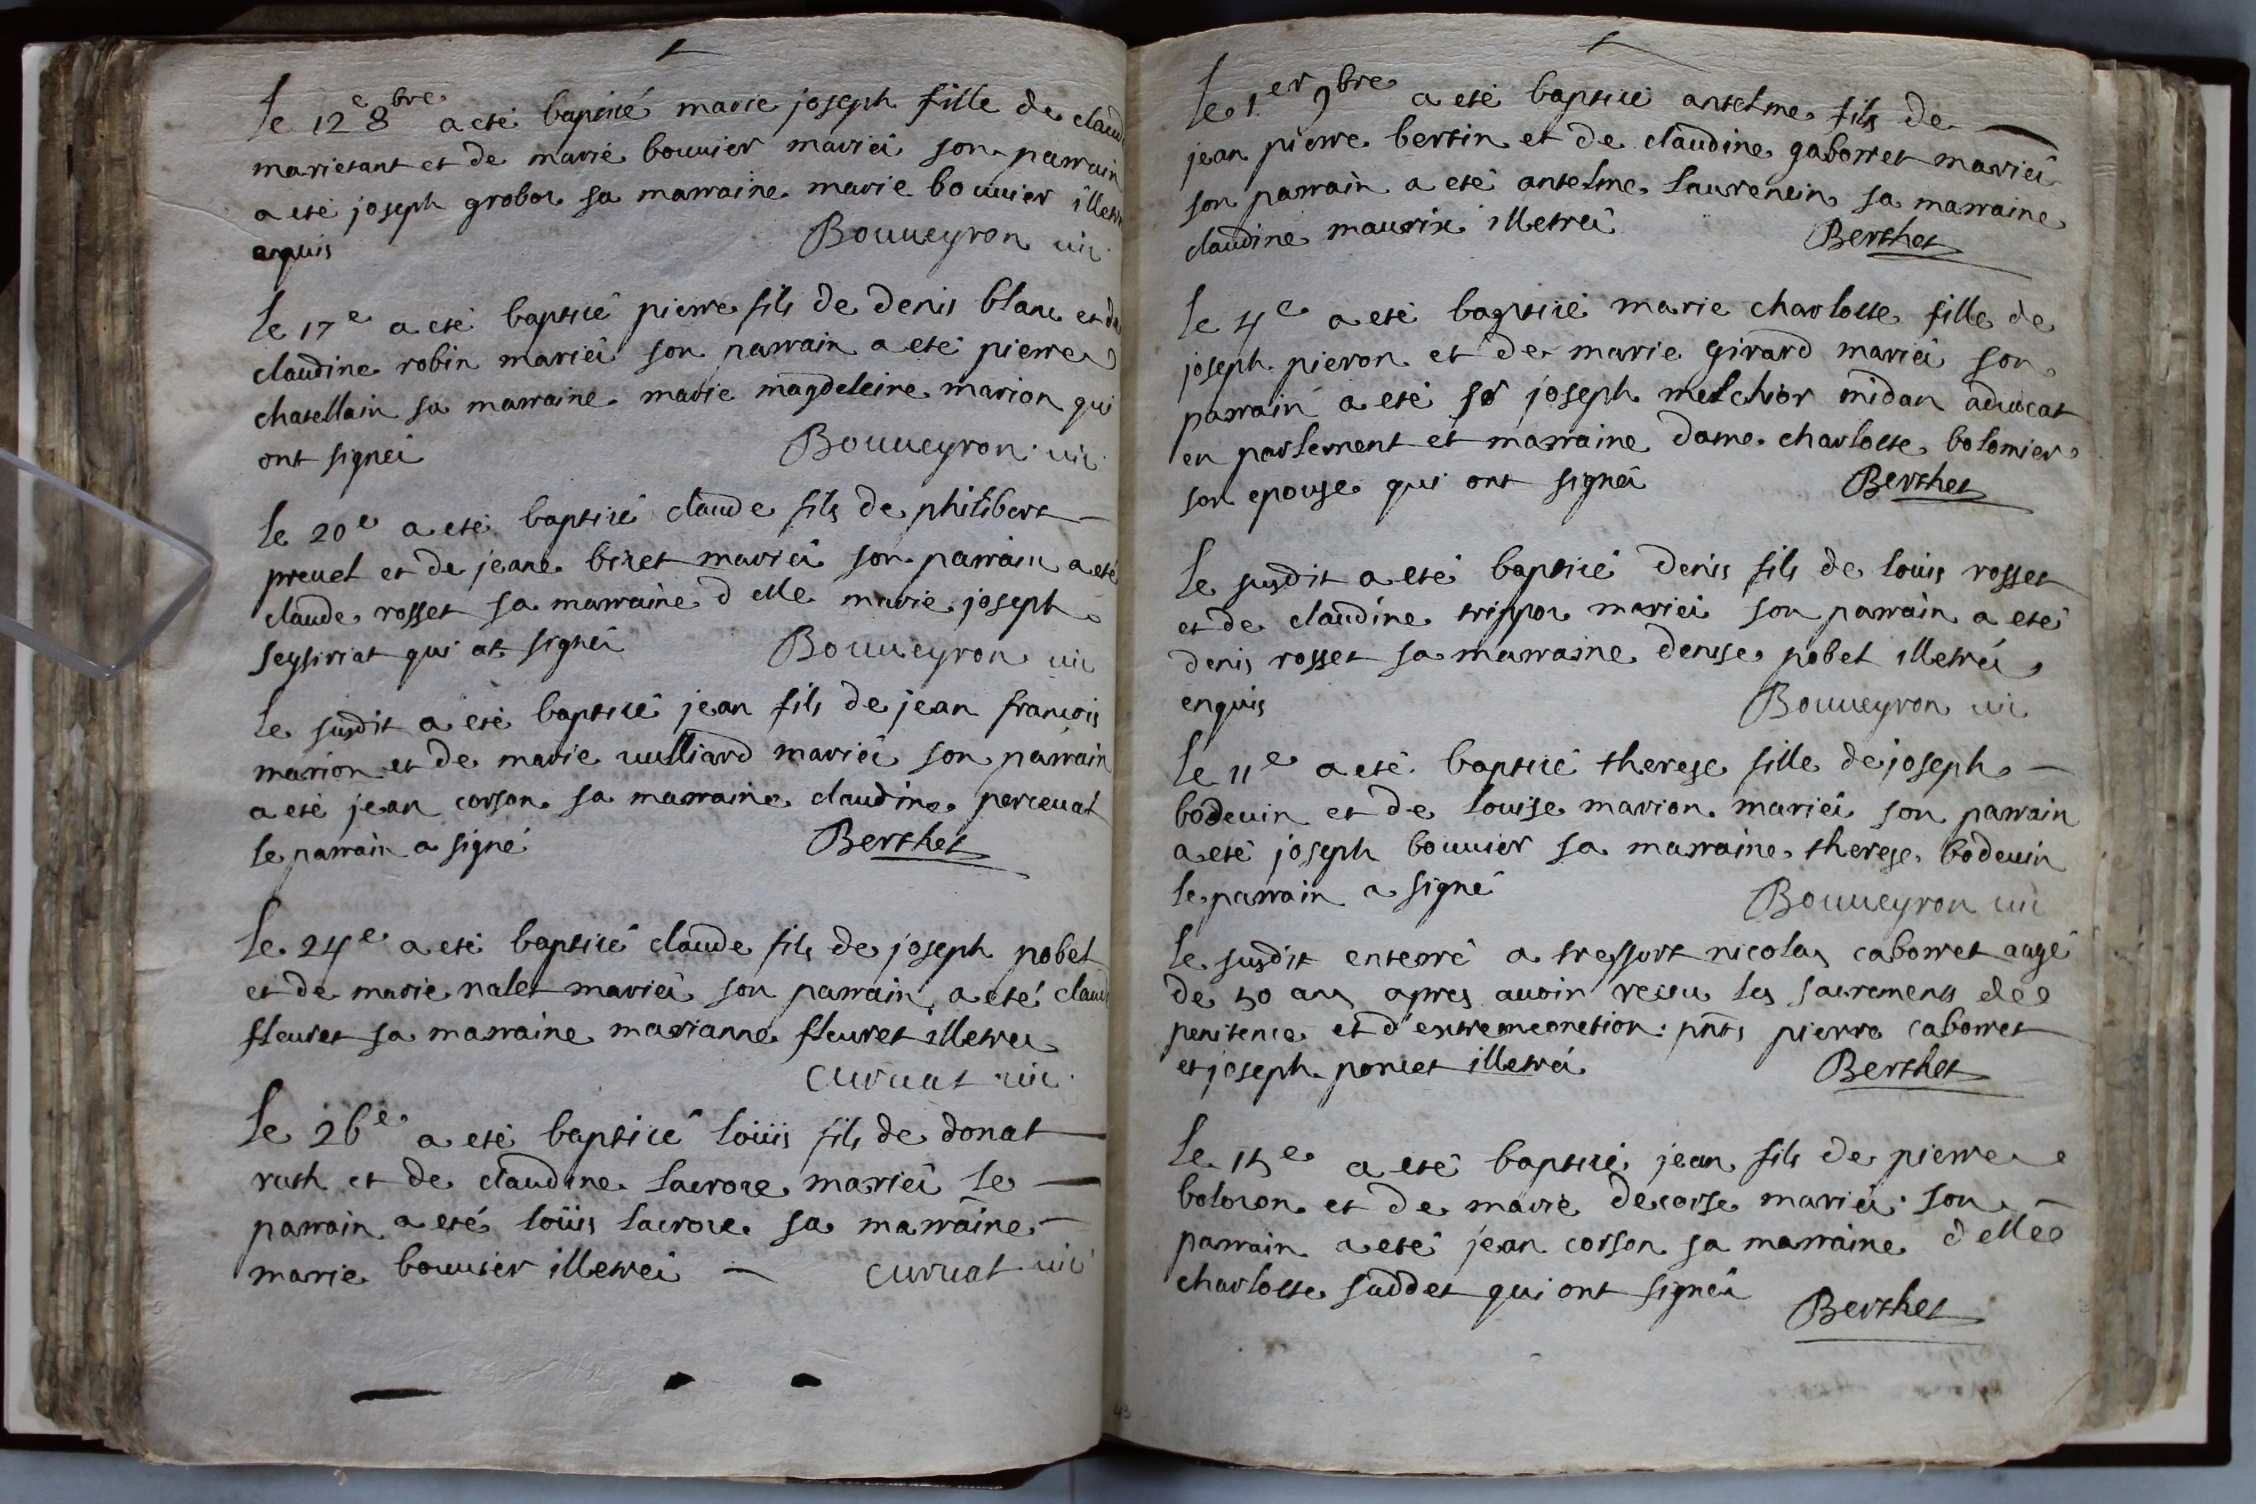 le 12e 8bre a eté baptisé marie joseph fille de claude
marietant et de marie bouvier mariéi son parrain
a eté joseph grobor sa marraine marie bouvier illetré
enquis Bouveyron vic
le 17e a eté baptisé pierre fils de denis blanc et de
claudine robin mariéi son parrain a eté pierre
chatellain sa marraine marie magdeleine marion qui
ont signéi Bouveyron vic
le 20e a eté baptisé claude fils de philibert
prevel et de jeane biset mariéi son parrain a eté
claude rosset sa marraine delle marie joseph
seysiriat qui at signéi Bouveyron vic
le susdit a eté baptisé jean fils de jean françois
marion et de marie vulliard mariéi son parrain
a eté jean corson sa marraine claudine perceval
le parrain a signé Berthet
le 24e a eté baptisé claude fils de joseph pobel
et de marie nalet mariéi son parrain a eté claude
fleuret sa marraine marianne fleuret illetréi
curvat vic
le 26e a eté baptisé loüis fils de donat
ruth et de claudine lacroix mariéi le
parrain a eté loüis lacroix sa marraine
marie bouvier illetréi curvat vic
le 1er 9bre a eté baptisé antelme fils de
jean pierre bertin et de claudine gaborret mariéi
son parrain a eté antelme laurencin sa marraine
claudine maurix illetréi Berthet
le 4e a eté baptisé marie charlotte fille de
joseph pieron et de marie girard mariéi son
parrain a eté sr joseph melchior midan advocat
en parlement et marraine dame charlotte bolomier
son epouse qui ont signéi Berthet
le susdit a eté baptisé denis fils de loüis rosset
et de claudine trippor mariéi son parrain a eté
denis rosset sa marraine denise pobel illetréi
enquis Bouveyron vic
le 11e a eté baptisé therese fille de joseph
bodevin et de louise marion mariéi son parrain
a eté joseph bouvier sa marraine therese bodevin
le parrain a signé Bouveyron vic
le susdit enterré a tressort nicolas caborret aagé
de 50 ans apres avoir receu les sacrements de
penitence et d'extremeonction pnts pierre caborret
et joseph poncet illetréi Berthet
le 15e a eté baptisé jean fils de pierre
bolozon et de marie decorse mariéi son
parrain a eté jean corson sa marraine delle
charlotte suddet qui ont signéi Berthet